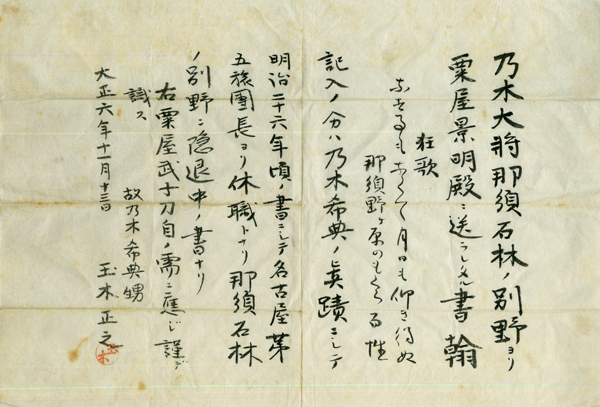 乃木大将那須石林ノ別野ヨリ
粟屋景明殿ニ送ラレタル書翰
狂歌
月日も仰き得ぬ
那須野ヶ原のもくら君性
記入ノ分ハ乃木希典ノ眞蹟ニシテ
明治二十六年頃ノ書ニシテ名古屋第
五旅團長ヨリ休職トナリ那須石林
ノ別野ニ隠退中ノ書ナリ
右粟屋武士刀自ノ需ニ應ジ謹デ
識ス
故乃木希典甥
大正六年十一月十三日 玉木正之
玉木